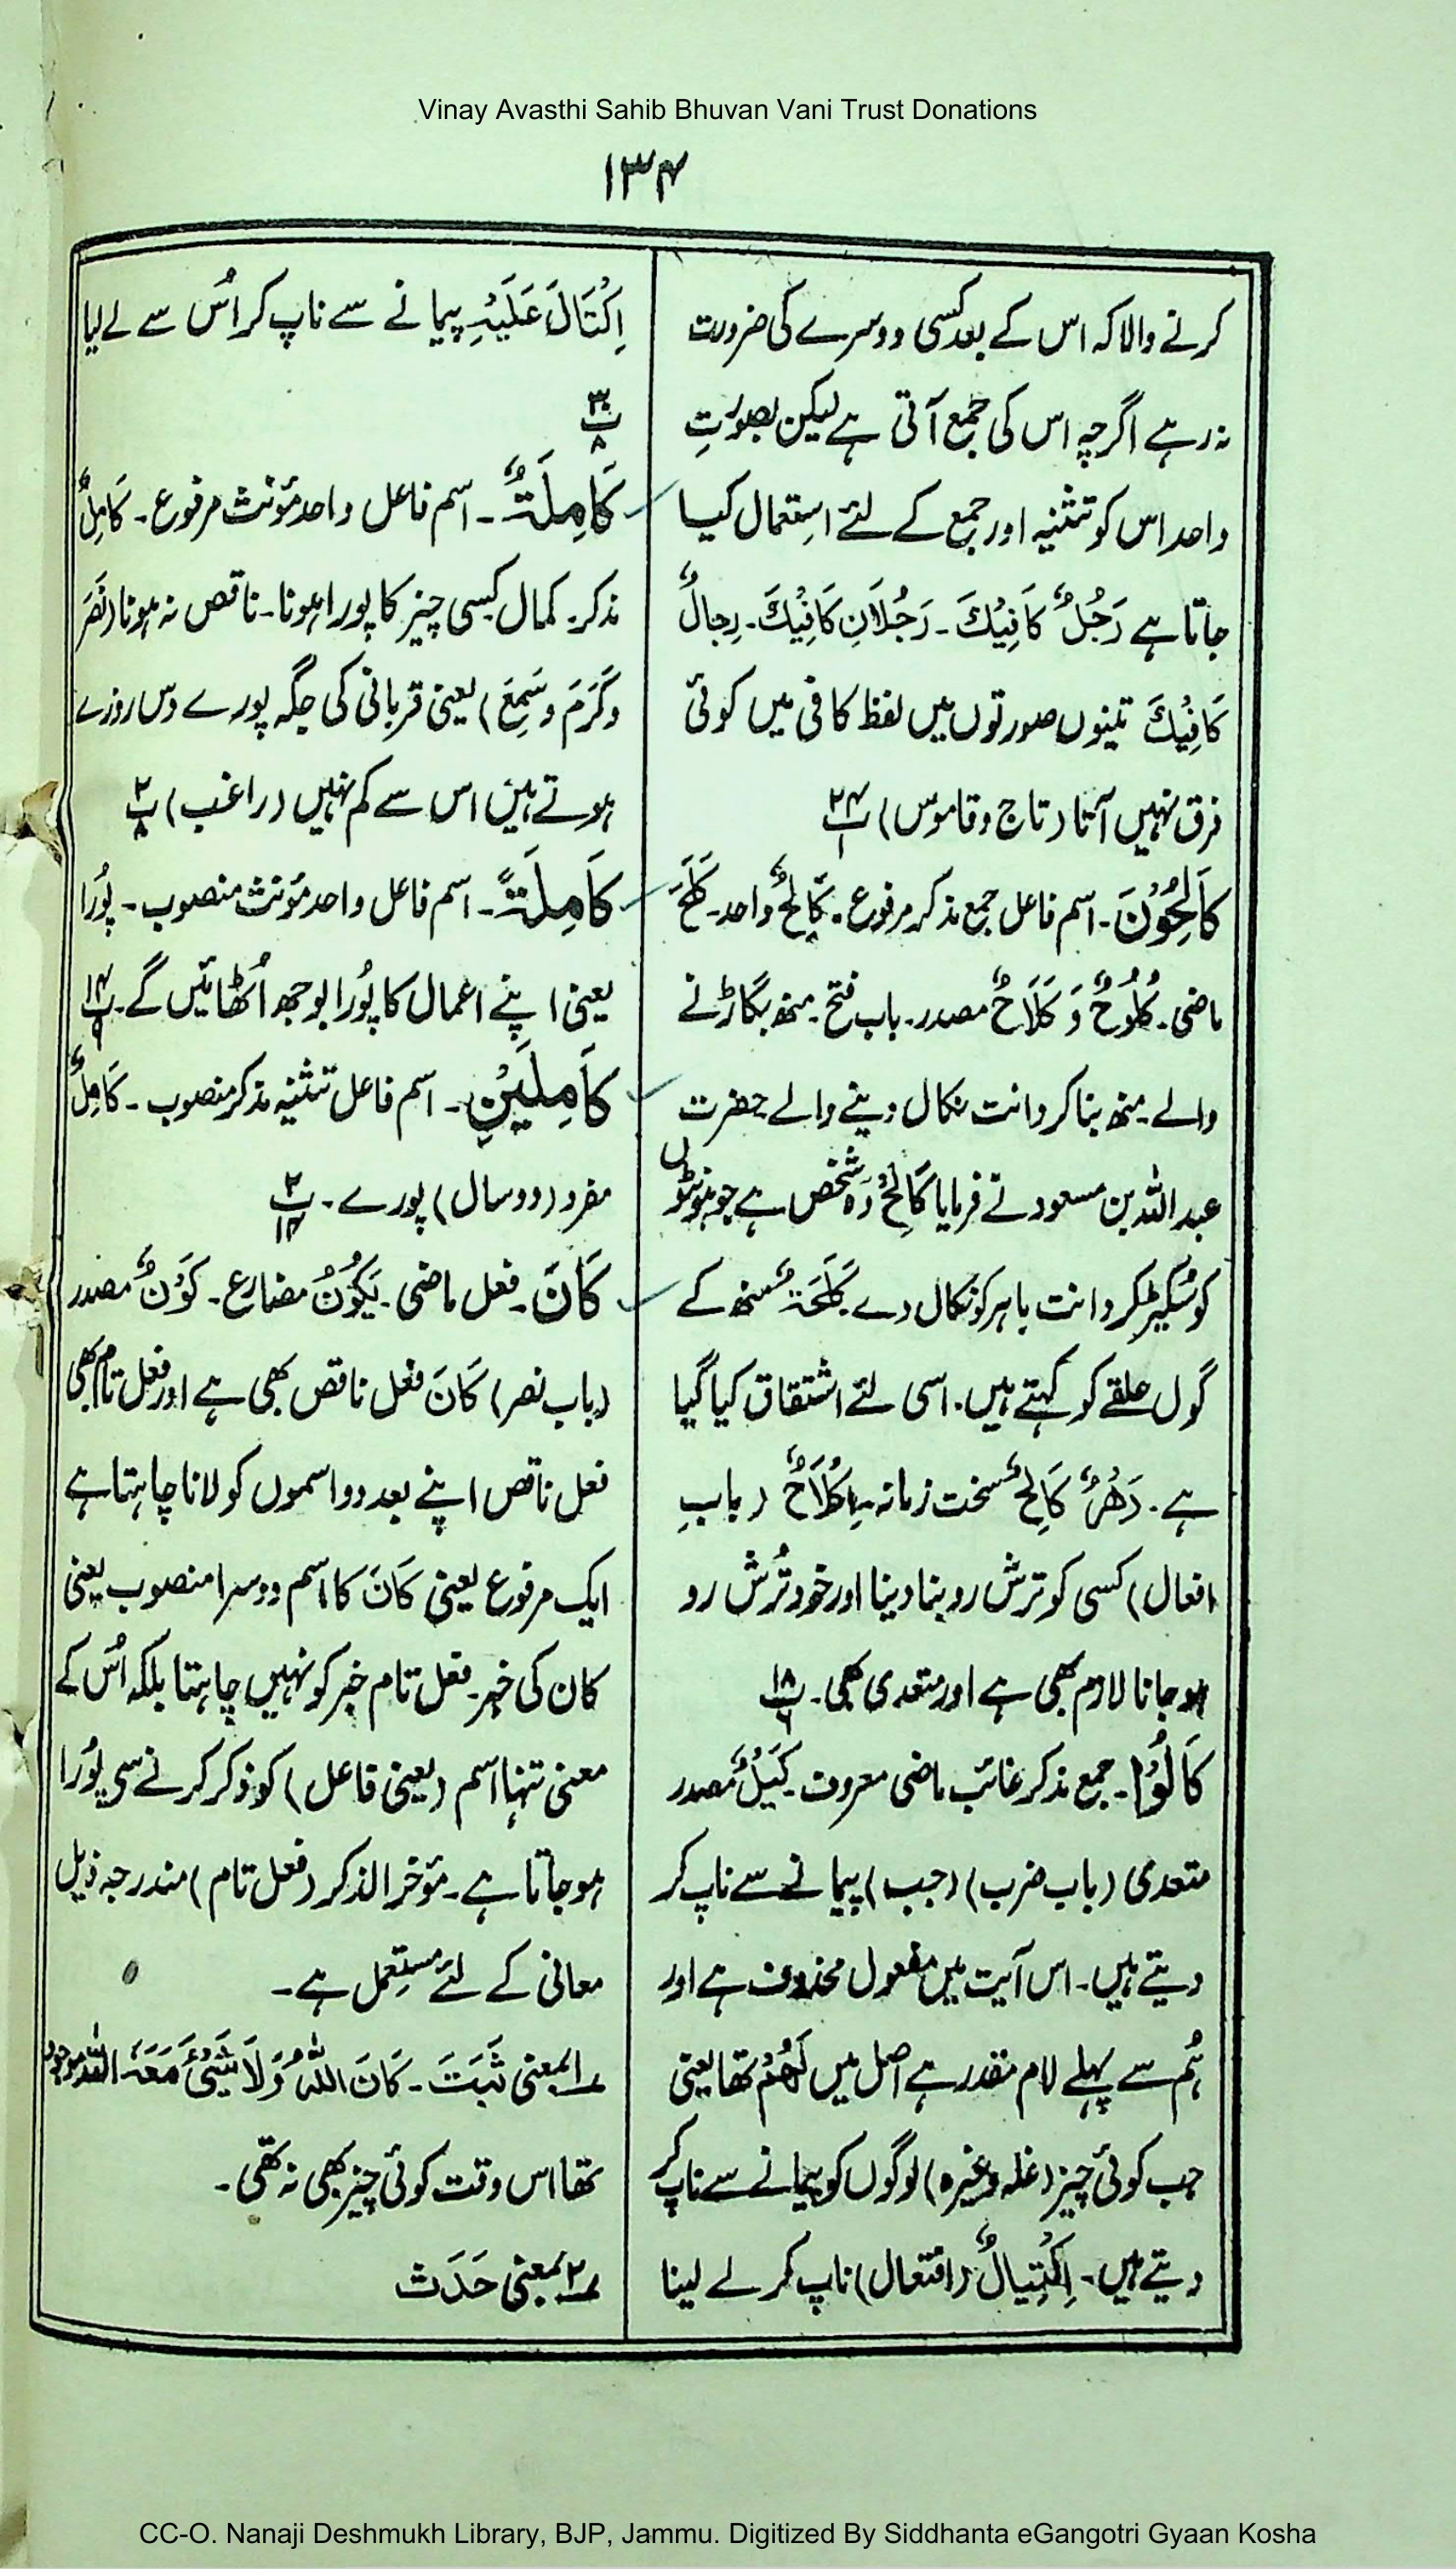 Vinay Avasthi Sahib Bhuvan Vani Trust Donations
۱۳۴
کرنے والا کہ اس کے بعد کسی دوسرے کی ضرورت
نہ رہے اگرچہ اس کی جمع آتی ہے لیکن بصورتِ
واحد اس کو تثنیہ اور جمع کے لئے اِستعمال کیا
جاتا ہے رَجُلٌ کَافِیْكَ۔ رَجُلَانِ کَافِیْكَ۔ رِجالٌ
کَافِیْكَ تینوں صورتوں میں لفظ کافی میں کوئی
فرق نہیں آتا (تاج و قاموس) ۲۴پ۱
کَالِحُوْنَ۔ اسم فاعل جمع مذکر مرفوع۔ کَالِحٌ واحد۔ کَلَحَ
ماضی۔ کُلُوحٌ وَ کَلَاحٌ مصدر۔ باب فتح۔ منھ بگاڑنے
والے۔ منھ بنا کر دانت نکال دینے والے حضرت
عبد اللہ بن مسعود نے فرمایا کَالِحٌ وہ شخص ہے جو ہونٹوں
کو سُکیڑ کر دانت باہر کو نکال دے۔ کَلَحَۃٌ منھ کے
گول حلقے کو کہتے ہیں۔ اسی لئے اشتقاق کیا گیا
ہے۔ دَھْرٌ کَالِحٌ سخت زمانہ۔ اِکْلَاحٌ (بابِ
افعال) کسی کو ترش رو بنا دینا اور خود تُرش رو
ہو جانا لازم بھی ہے اور متعدی بھی۔ ۱۸پ۶
کَالُوْا۔ جمع مذکر غائب ماضی معروف۔ کَیْلٌ مصدر
متعدی (باب ضرب) (جب) پیمانے سے ناپ کر
دیتے ہیں۔ اس آیت میں مفعول محذوف ہے اور
ہُم سے پہلے لام مقدر ہے اصل میں لَھُمْ تھا یعنی
جب کوئی چیز (غلہ وغیرہ) لوگوں کو پیمانے سے ناپ کر
دیتے ہیں۔ اِکْتِیالٌ (افتعال) ناپ کر لے لینا
اِکْتَالَ عَلَیْہِ پیمانے سے ناپ کر اُس سے لے لیا
۳۰پ۸
کَامِلَۃٌ۔ اسم فاعل واحد مؤنث مرفوع۔ کَامِلٌ
مذکر۔ کمال کسی چیز کا پورا ہونا۔ ناقص نہ ہونا (نَصَرَ
وَکَرَمَ وسَمِعَ) یعنی قربانی کی جگہ پورے دس روزے
ہوتے ہیں اس سے کم نہیں (راغب) ۲پ۸
کَامِلَۃً۔ اسم فاعل واحد مؤنث منصوب۔ پُورا
یعنی اپنے اعمال کا پُورا بوجھ اُٹھائیں گے۔ ۱۴پ۹
کَامِلَیْنِ۔ اسم فاعل تثنیہ مذکر منصوب۔ کَامِلٌ
مفرد (دو سال) پورے۔ ۲پ۱۴
کَانَ۔ فعل ماضی۔ یَکُوْنُ مضارع۔ کَوْنٌ مصدر
(باب نصر) کَانَ فعل ناقص بھی ہے اور فعل تام بھی
فعل ناقص اپنے بعد دو اسموں کو لانا چاہتا ہے
ایک مرفوع یعنی کَانَ کا اسم دوسرا منصوب یعنی
کان کی خبر۔ فعل تام خبر کو نہیں چاہتا بلکہ اُس کے
معنی تنہا اسم (یعنی فاعل) کو ذکر کرنے سی پُورا
ہو جاتا ہے۔ مؤخر الذکر (فعل تام) مندرجہ ذیل
معانی کے لئے مستعمل ہے۔
۱؎ بمعنی ثَبَتَ۔ کَانَ اللّٰہُ وَلَا شَیْئَ مَعَہٗ اللہ موجود
تھا اس وقت کوئی چیز بھی نہ تھی۔
۲؎ بمعنی حَدَثَ
CC-O. Nanaji Deshmukh Library, BJP, Jammu. Digitized By Siddhanta eGangotri Gyaan Kosha